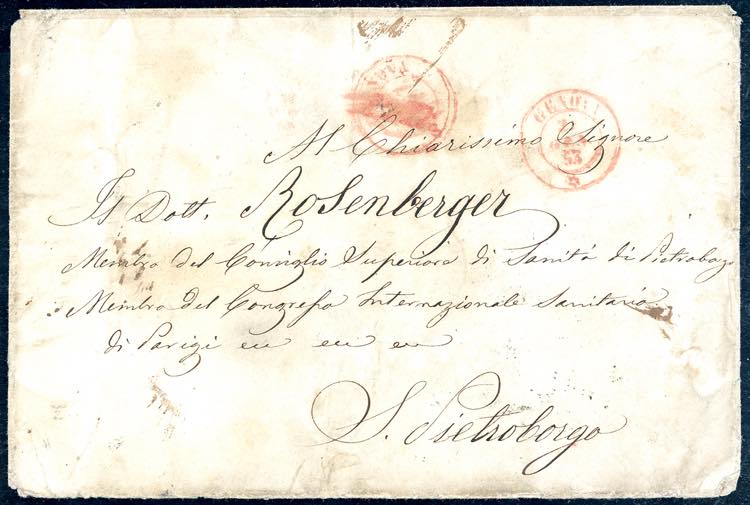 GENOVA
53
Al Chiarissimo Signore
Il Dott. Rosenberger
Membro del Consiglio Superiore di Sanitá di Pietroborgo
Membro del Congresso Internazionale Sanitario
di Parigi ecc ecc ecc
S. Pietroborgo